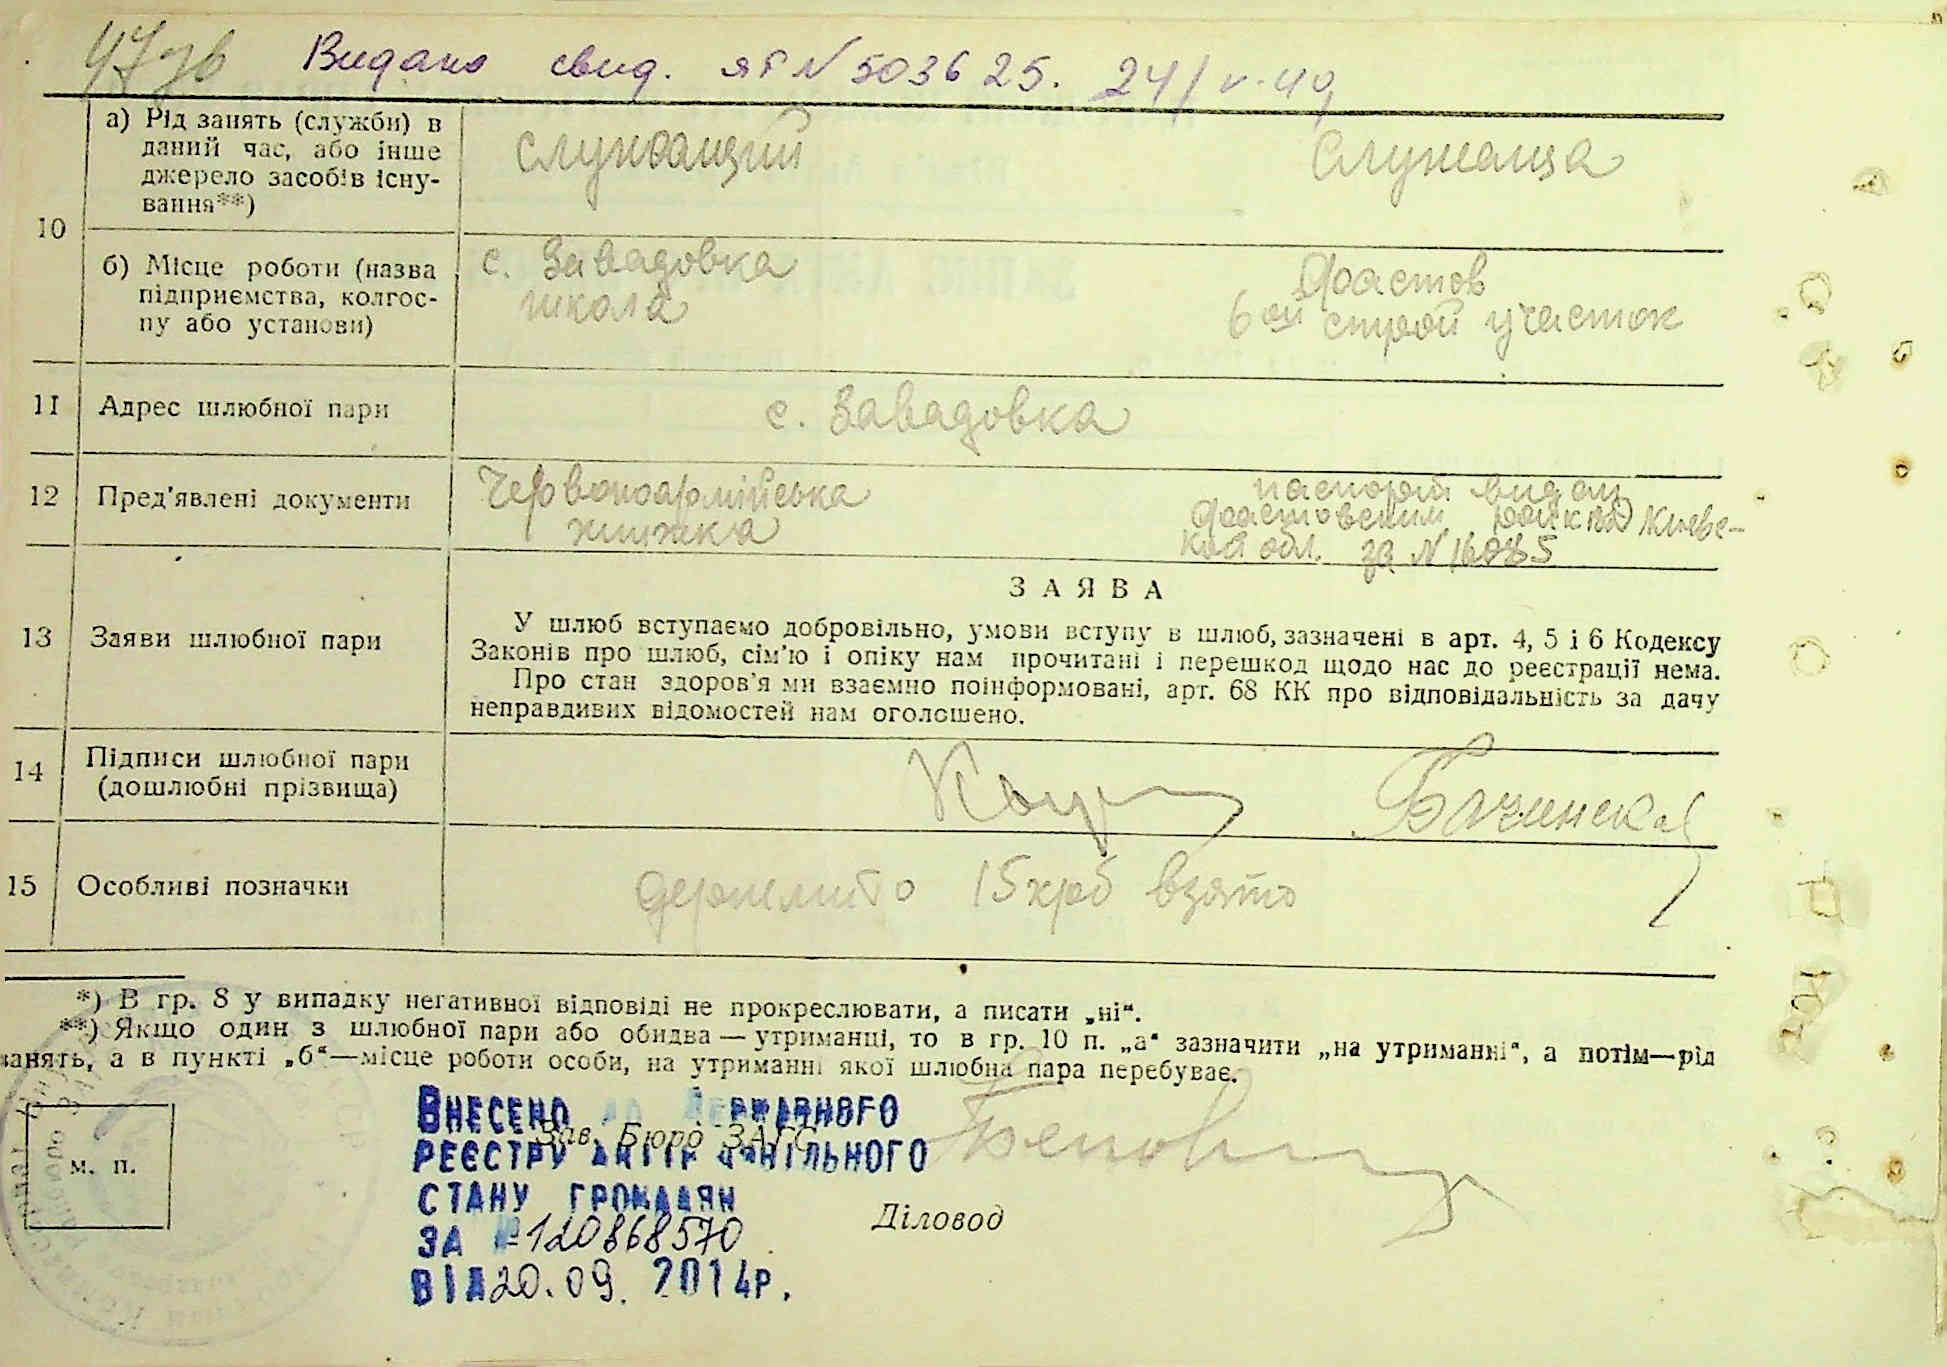 Видано свид. ЯГ N 503625. 24/V-49
10
а) Рід занять (служби) в
даний час, або інше
джерело засобів існу-
вання**)
служащий
служаща
б) Місце роботи (назва
підприємства, колгос-
пу або установи)
с. Завадовка
школа
Фастов
6ой строй участок
11 Адрес шлюбної пари
с. Завадовка
12 Пред'явлені документи
Червоноармійська
книжка
паспорт видан
Фастовским Києвс-
кой обл. за N 16085
ЗАЯВА
13 Заяви шлюбної пари
У шлюб вступаємо добровільно, умови вступу в шлюб, зазначені в арт. 4, 5 і 6 Кодексу
Законів про шлюб, сім'ю і опіку нам прочитані і перешкод щодо нас до реєстрації нема.
Про стан здоров'я ми взаємно поінформовані, арт. 68 КК про відповідальність за дачу
неправдивих відомостей нам оголошено.
14 Підписи шлюбної пари
(дошлюбні прізвища)
Бачинская
15 Особливі позначки
держмито 15 крб взято
*) В гр. 8 у випадку негативної відповіді не прокреслювати, а писати „ні“.
**) Якщо один з шлюбної пари або обидва — утриманці, то в гр. 10 п. „а“ зазначити „на утриманні“, а потім—рід
занять, а в пункті „б“—місце роботи особи, на утриманні якої шлюбна пара перебуває.
М. П.
Зав. Бюро ЗАГС
Діловод
ВНЕСЕНО ДО ДЕРЖАВНОГО
РЕЄСТРУ АКТІВ ЦИВІЛЬНОГО
СТАНУ ГРОМАДЯН
ЗА №120868570
ВІД 20.09. 2014р.